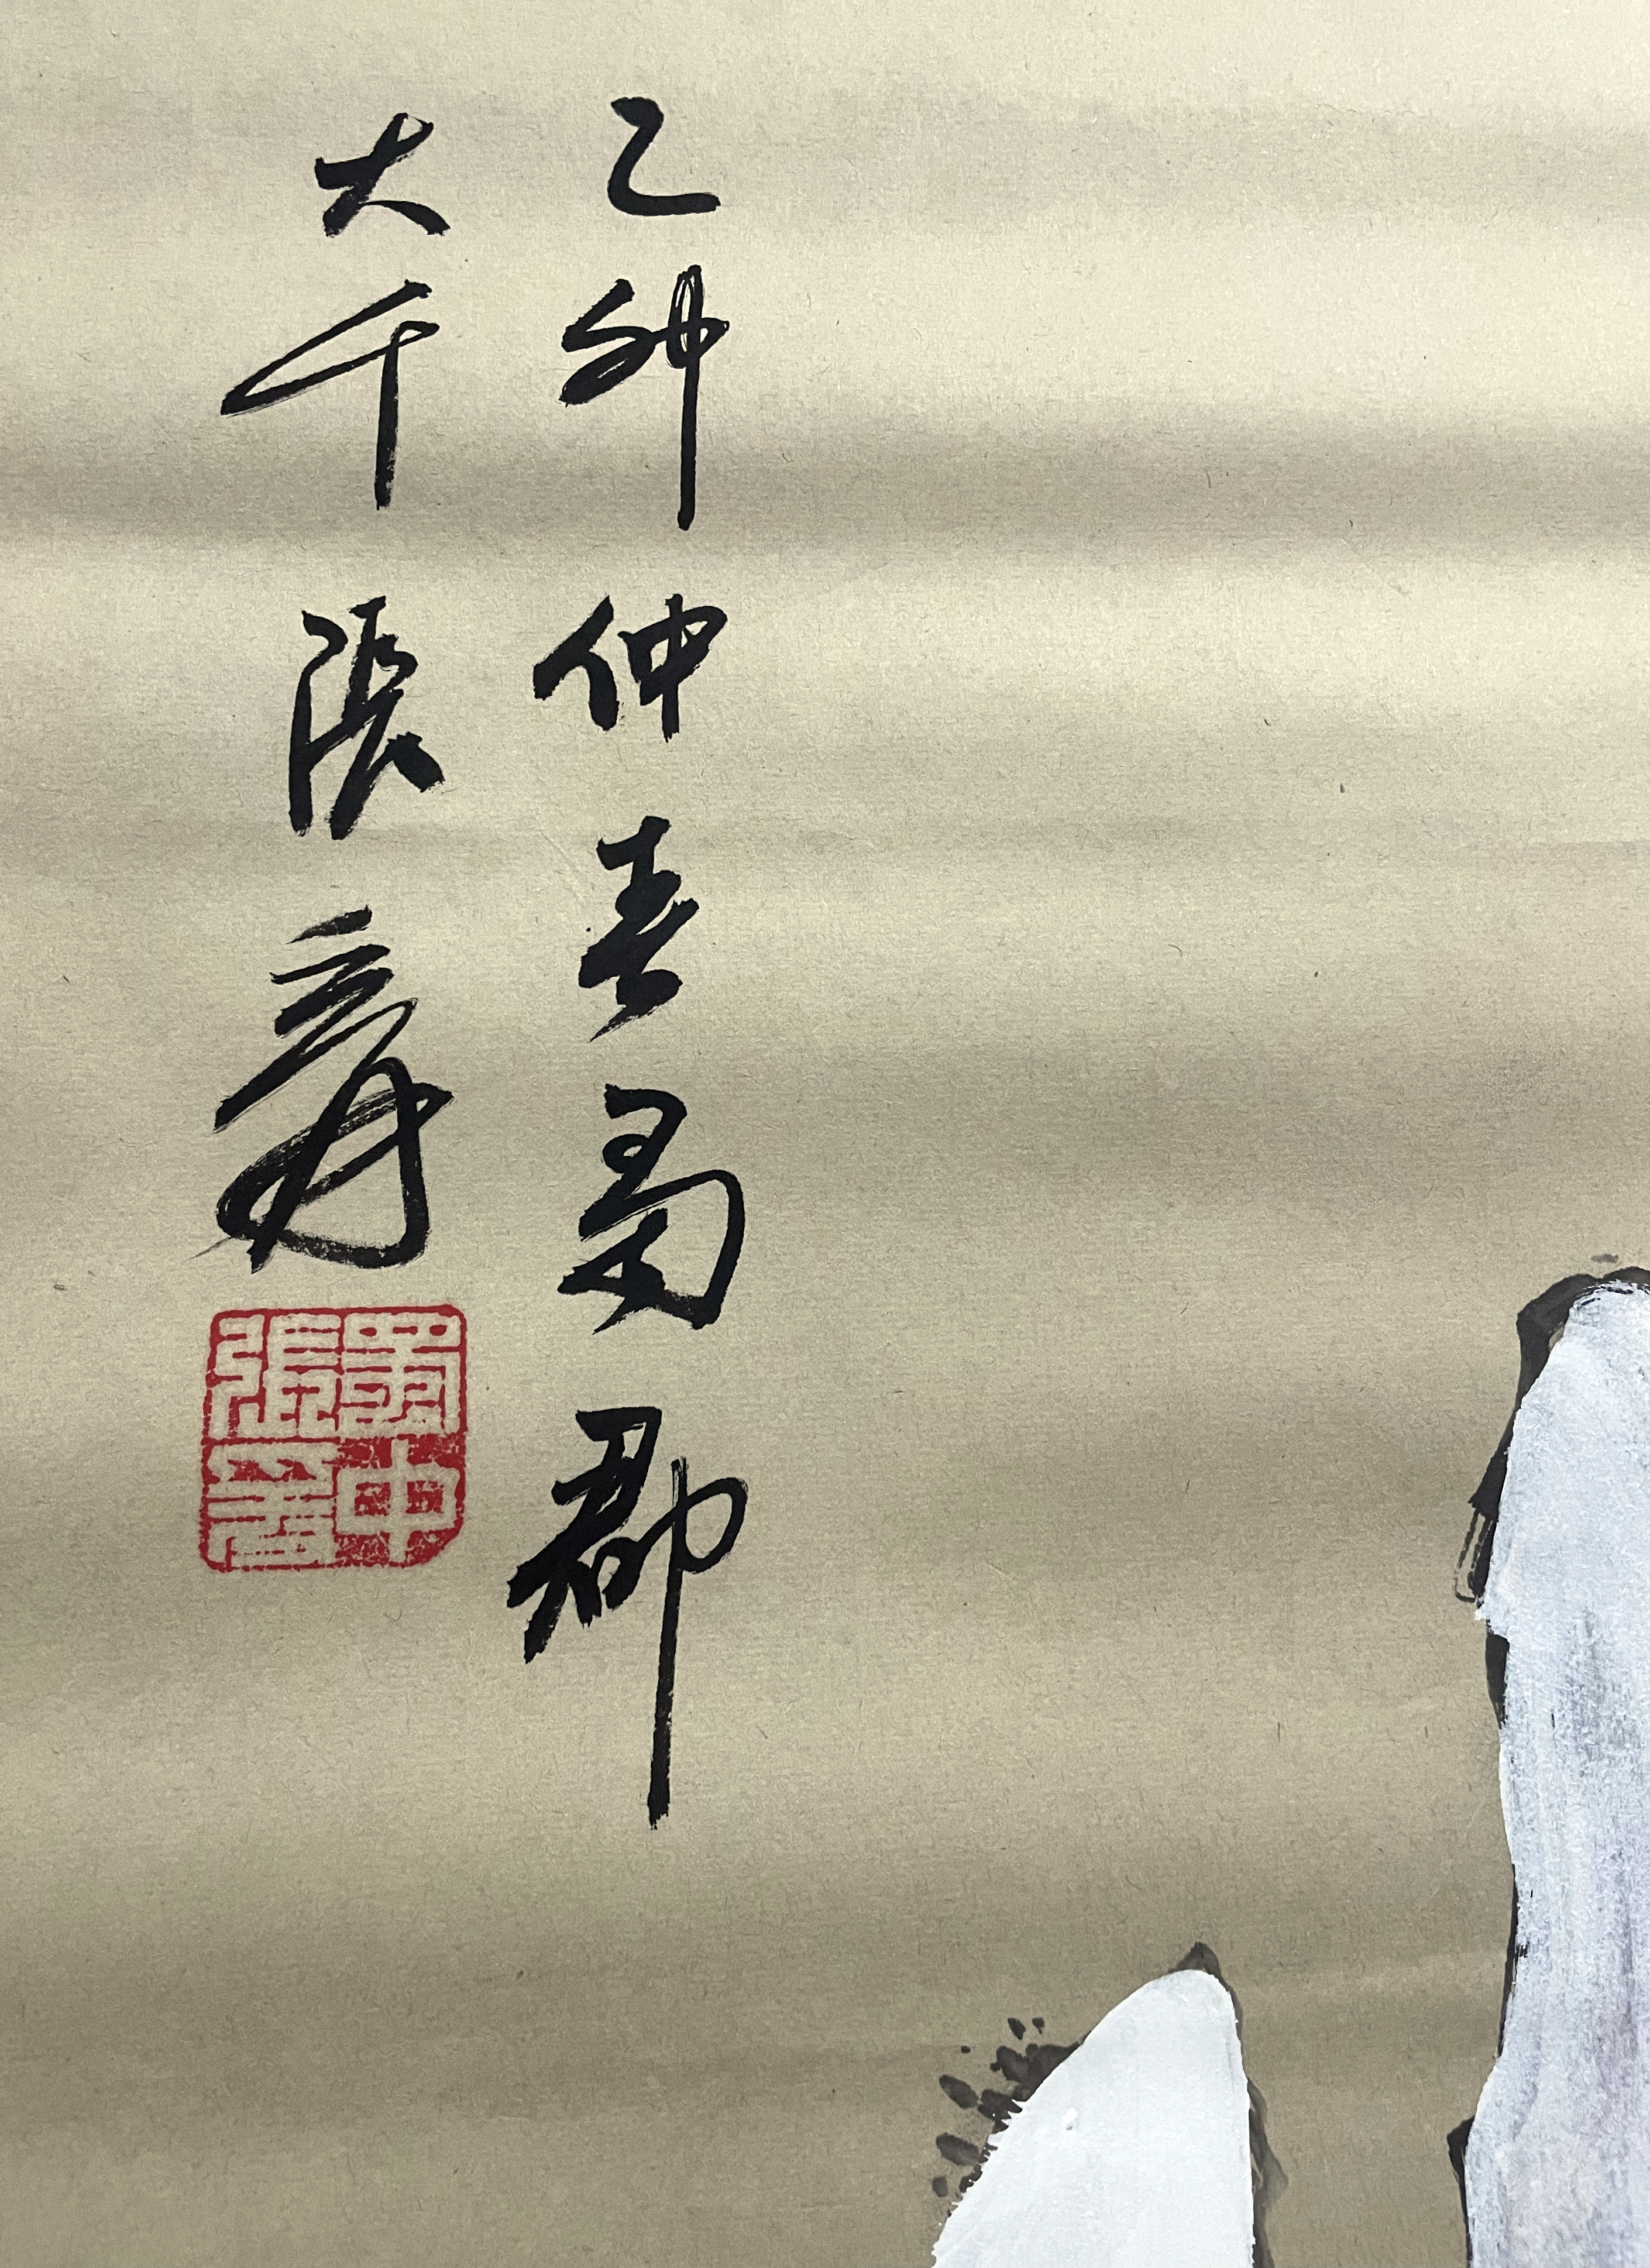 乙卯仲春蜀郡
大千張爰
蜀中張爰